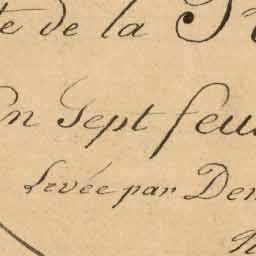 te de la
en Sept feui
Levée par Den